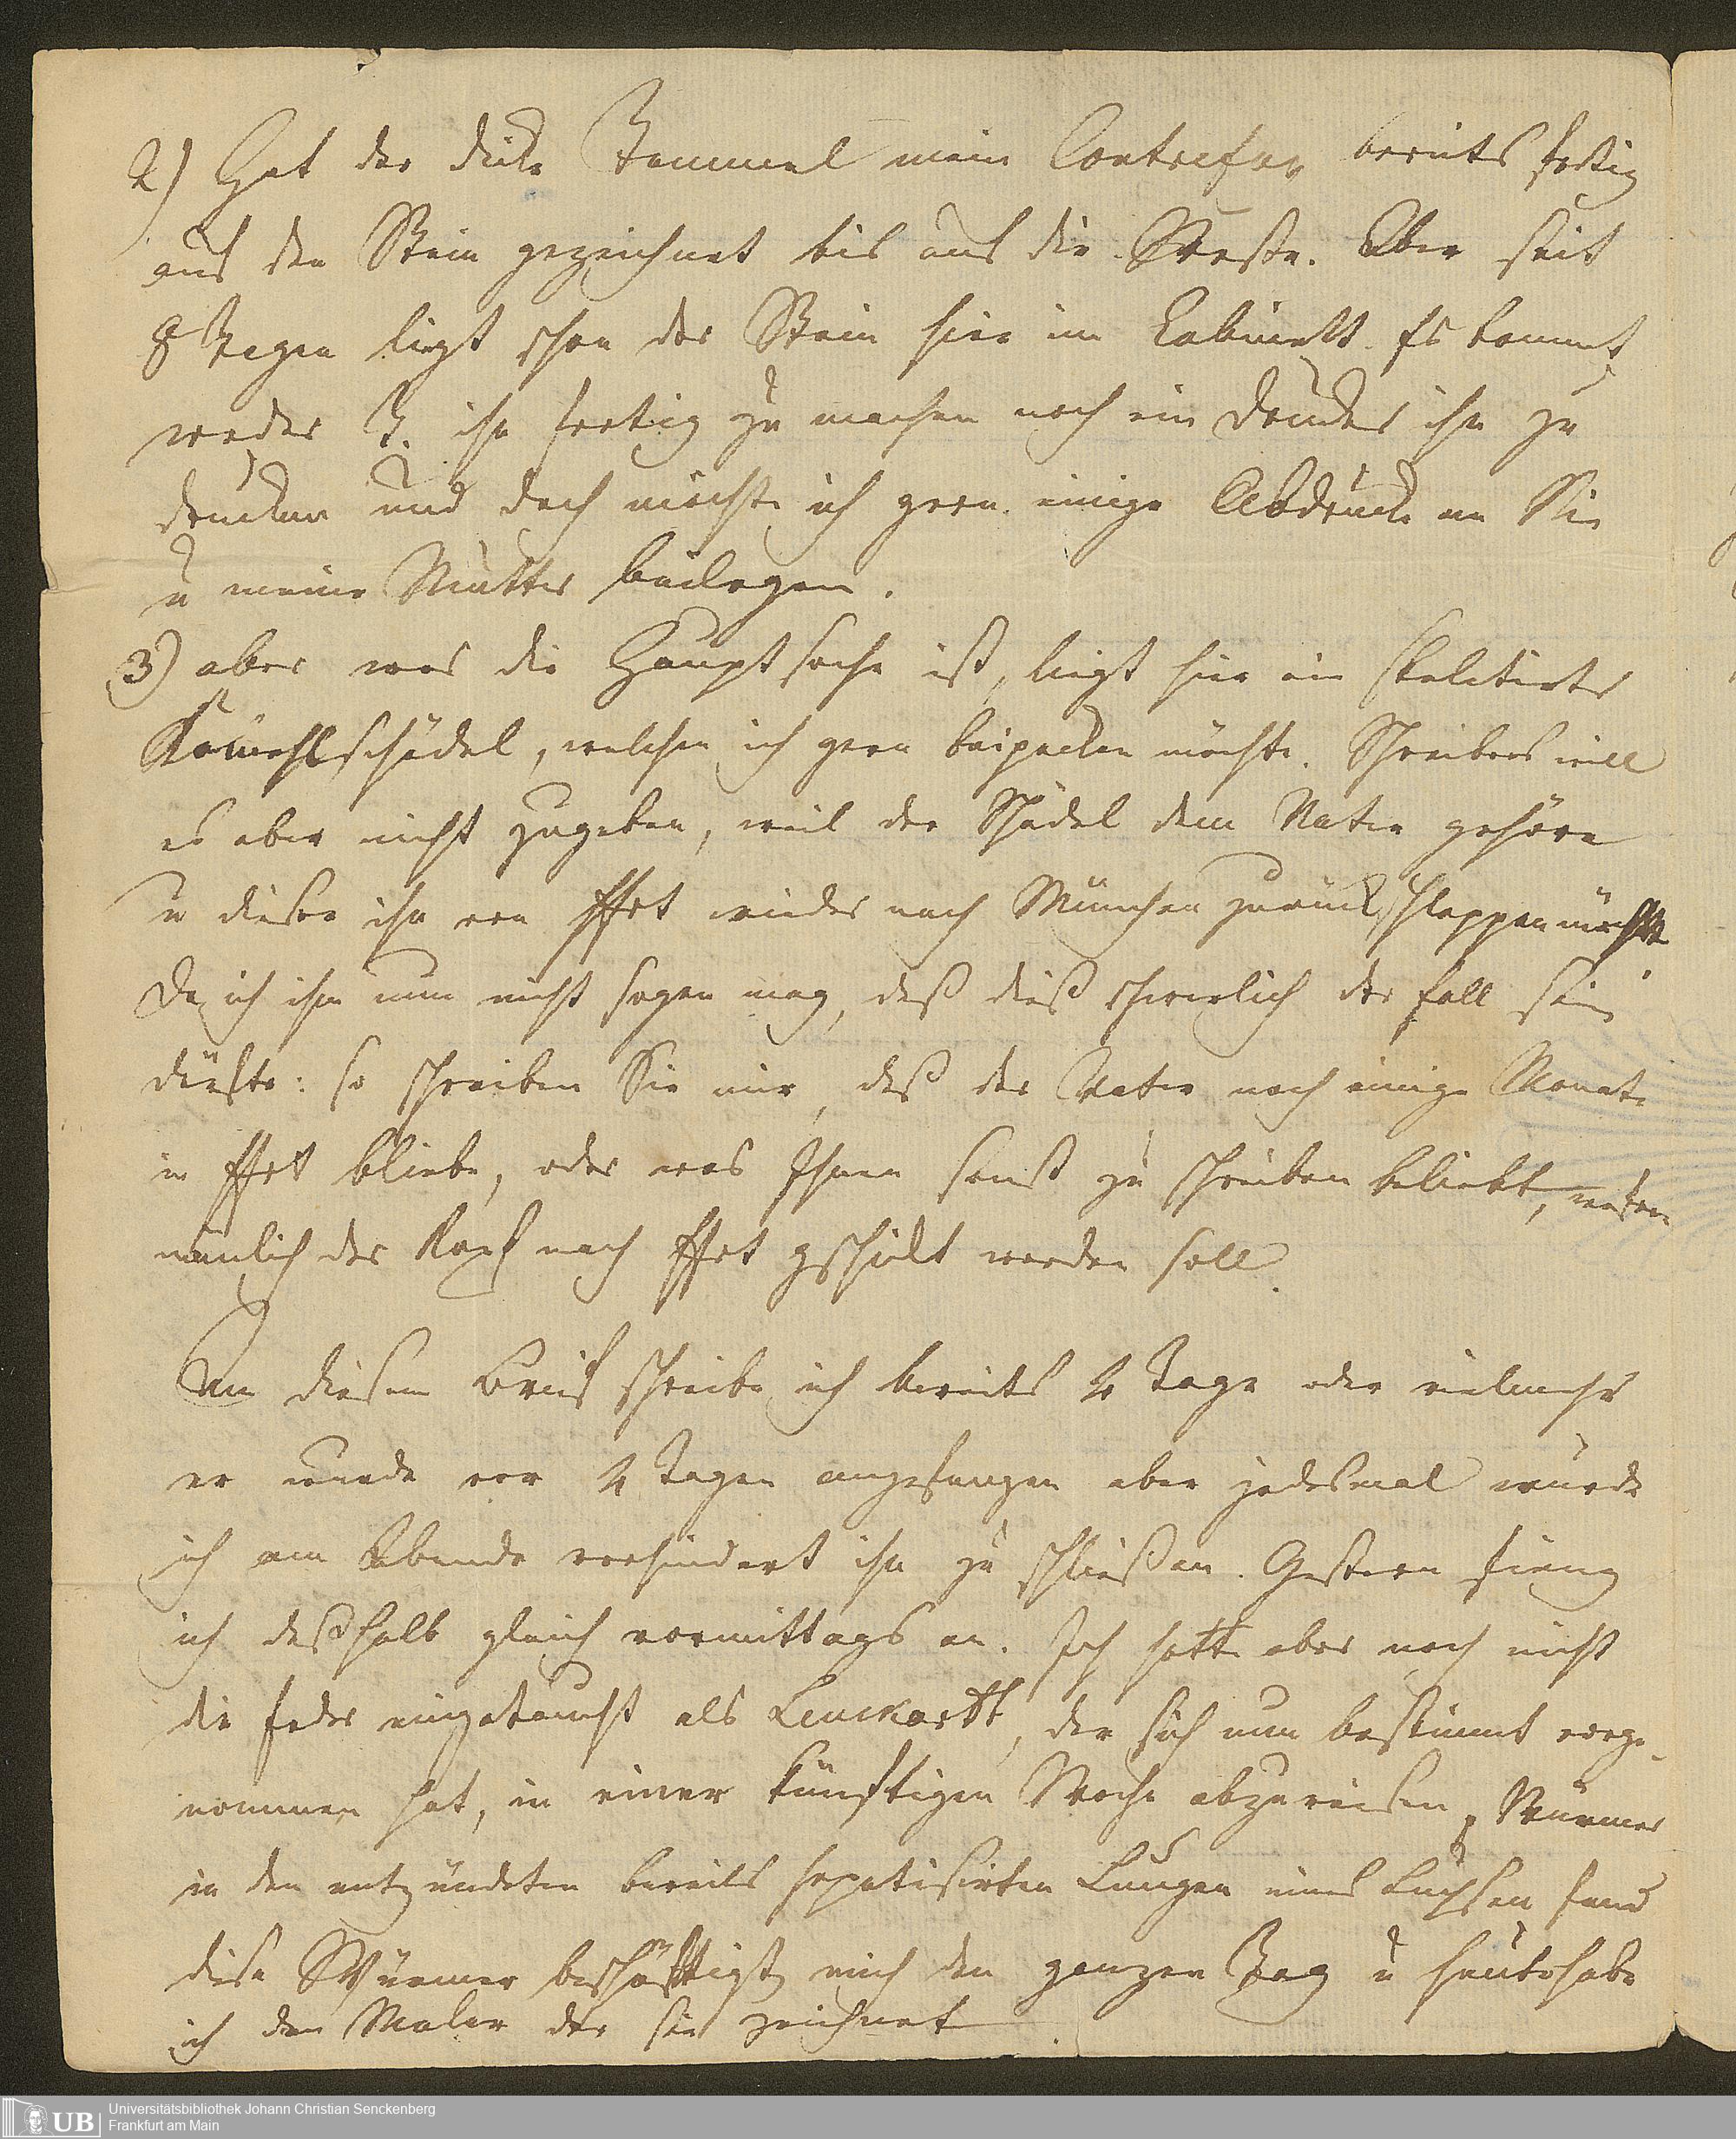 2) Hat der dicke Temmel mein Contrefay bereits fertig
auf den Stein gezeichnet bis auf die Weste. Aber seit
8 Tagen liegt schon der Stein hier im Cabinett. Es kommt
weder T. ihn fertig zu machen noch ein Drucker ihn zu
drucken und doch möchte ich gern einige Abdrücke an Sie
u meine Mutter beilegen.
3) aber was die Hauptsache ist, liegt hier ein skeletirter
schädel, welchen ich gern beipacken möchte. Schreibers will
es aber nicht zugeben, weil der Schädel dem Vater gehöre
u dieser ihn von Ffrt wieder nach München zurück schleppen möchte
Da ich ihm nun nicht sagen mag, daß dieß schwerlich der Fall sein
dürfte: so schreiben Sie mir, daß der Vater noch einige Monate
in Ffrt bliebe, oder was Ihnen sonst zu schreiben beliebt, wofern
nämlich der Kopf nach Ffrt geschickt werden soll.
An diesem Brief schreibe ich bereits 4 Tage oder vielmehr
er wurde vor 4 Tagen angefangen aber jedesmal wurde
ich am Abende verhindert ihn zu schließen. Gestern fieng
ich deßhalb gleich vormittags an. Ich hatte aber noch nicht
die Feder eingetaucht als Leuckartt, der sich nun bestimmt vorge-
nommen hat, in einer künftigen Woche abzureisen, Würmer
in den entzündeten bereits hepatisirten Lungen eines Luchsen fand
diese Würmer beschäftigten mich den ganzen Tag u heute habe
ich den Maler der sie zeichnet
UB
Universitätsbibliothek Johann Christian Senckenberg
Frankfurt am Main